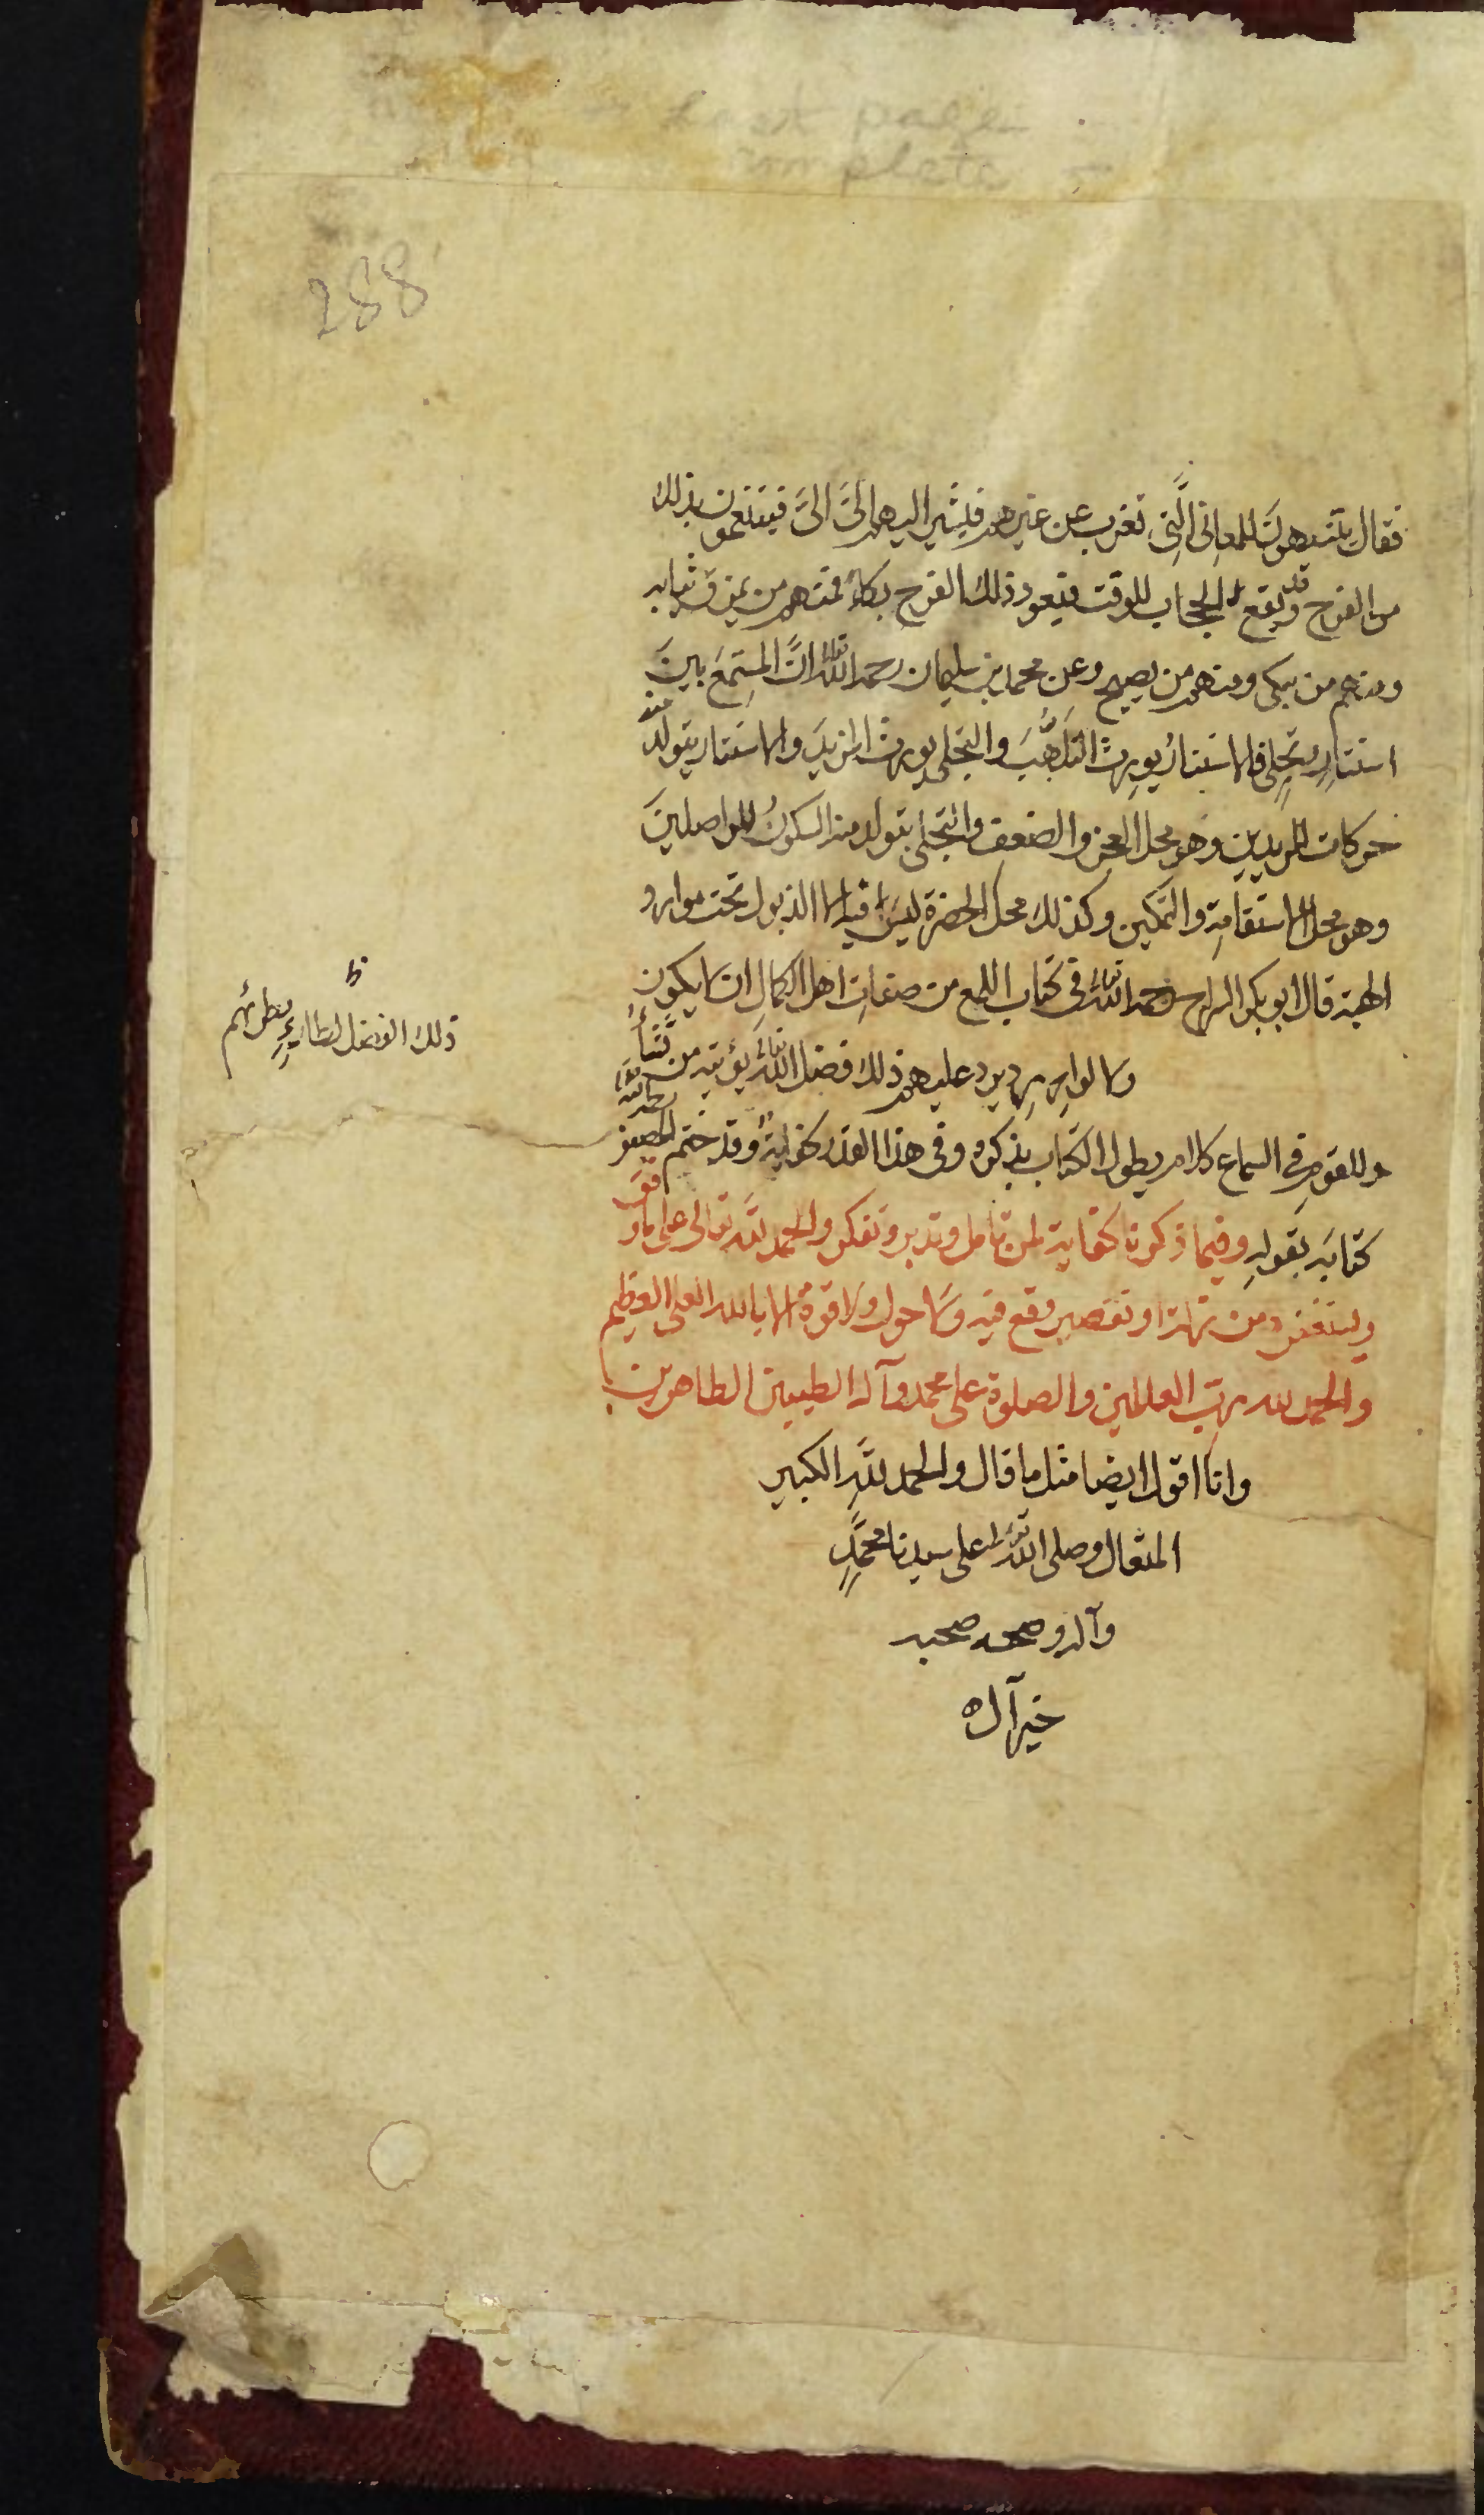 288
فقال يتنبهون للمعاني الَّتي تعزب عن غيرهم فيشير اليهم اليَّ اليَّ فيتنعمون بذلك
من الفرح وقد يقع الحجاب للوقت فيعود ذلك الفرح بكاءً فمنهم من يمزق ثيابه
ومنهم من يبكي ومنهم من يصيح وعن محمد بن سليمان رحمه الله تعالى انَّ المستمع بين
استتارٍ وتجلٍ فالاستتار يورث التلهُّب والتجلي يورث المزيد والاستتار يتولد منه
حركات المريدين وهو محل العجز والضعف والتجلي يتولد منه السكون للواصلين
وهو محل الاستقامة والتمكين وكذلك محل الحضرة ليس فيها الا الذبول تحت موارد
الهيبة قال ابو بكر السراج رحمه الله تعالى في كتاب اللمع من صفات اهل الكمال ان لا يكون
ذلك الفضل لطارٍ يطرئهم
ولا لوارد يرد عليهم ذلك فضل الله تعالى يؤتيه من يشاءُ
وللقوم في السماع كلام يطول الكتاب بذكره وفي هذا القدر كفايةٌ وقد ختم المصنف رحمه الله
كتابه بقوله وفيما ذكرنا كفاية لمن تامل وتدبر وتفكر والحمد لله تعالى على ما وفق
ونستغفره من زلة او تقصير وقع فيه ولا حول ولا قوة الا بالله العلي العظيم
والحمد لله رب العالمين والصلوة على محمد وآله الطيبين الطاهرين
وانا اقول ايضا مثل ما قال والحمد لله الكبير
المتعال وصلى الله تعالى على سيدنا محمَّدٍ
وآله وصحبه صحبه
خير آل ه